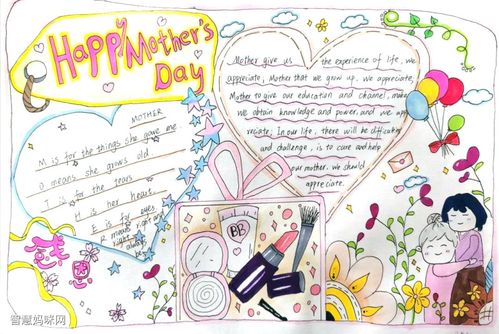 Happy Mother's
Day
MOTHER
M is for the things she gave me
O means she grows old
T is for the tears
H is her heart
E is for eyes
R means right and
right
always
be
Mother give us the experience of life, we
appreciate, Mother that we grow up, we appreciate,
Mother to give our education and channel, make
we obtain knowledge and power, and we app
reciate, In our life, there will be difficulties
and challenge, is to care and help
our mother. we should
appreciate.
BB
感
恩
智慧妈咪网